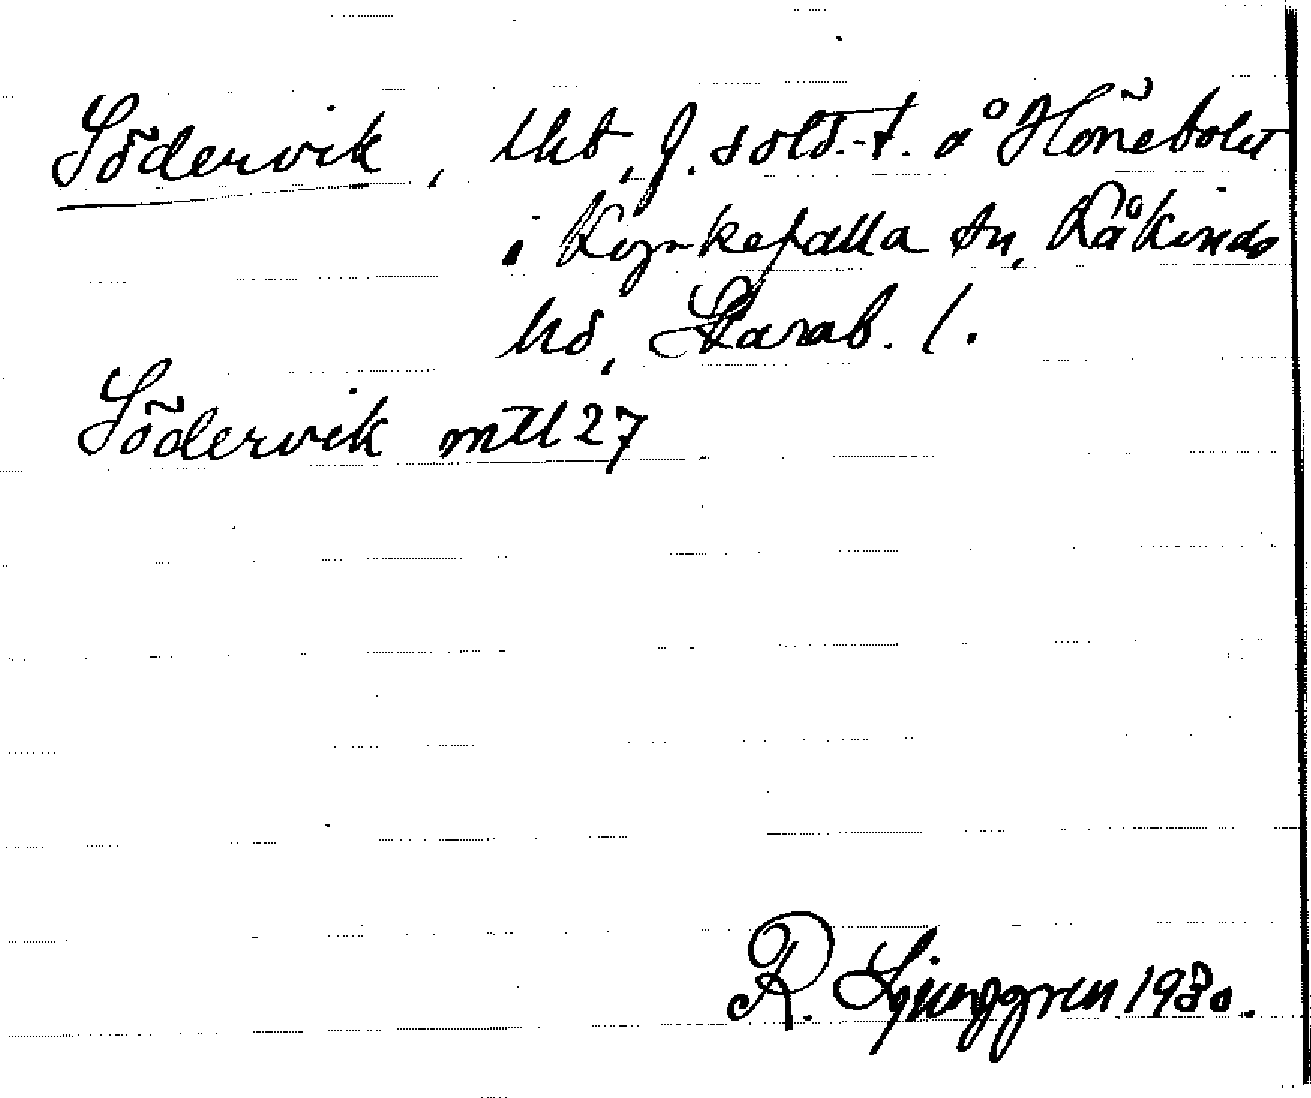 Södervik, lht, f. sold.-t. å Hönebolet
i Kyrkefalla sn, Kåkinds
hd, Skarab. l.
Södervik mtl 27
R. Ljunggren 1930.